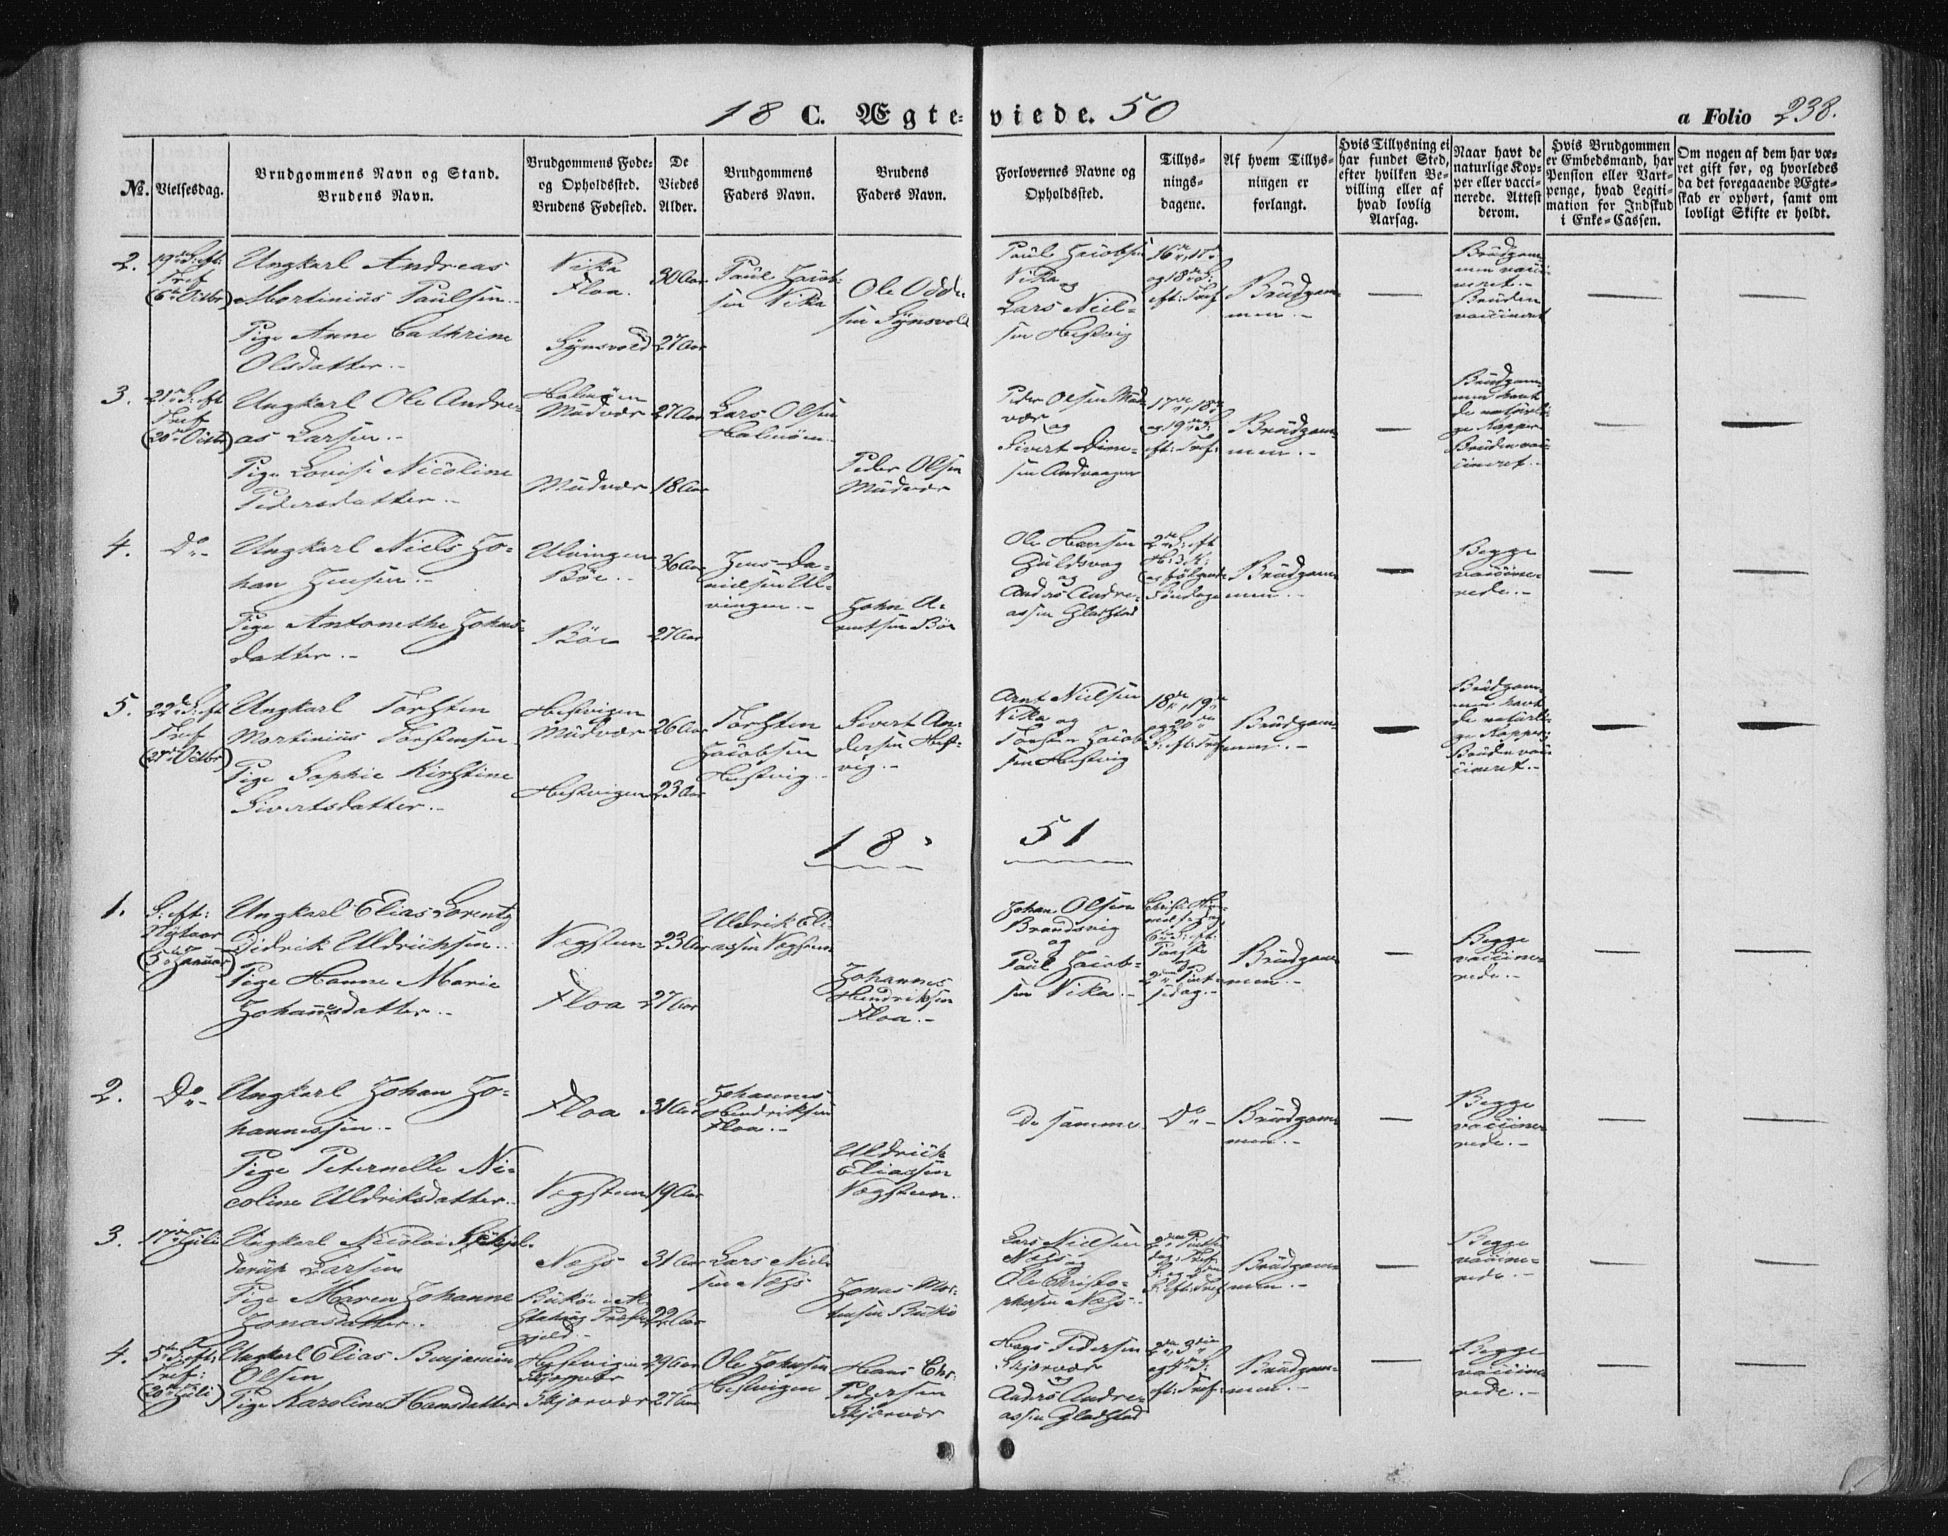 18 C. Ægteviede. 50
a Folio 238.
№.
Vielsesdag.
Brudgommens Navn og Stand.
Brudens Navn.
Brudgommens Føde-
og Opholdssted.
Brudens Fødested.
De
Viedes
Alder.
Brudgommens
Faders Navn.
Brudens
Faders Navn.
Forlovernes Navne og
Opholdssted.
Tillys-
nings-
dagene.
Af hvem Tillys-
ningen er
forlangt.
Hvis Tillysning ei
har fundet Sted,
efter hvilken Be-
villing eller af
hvad lovlig
Aarsag.
Naar havt de
naturlige Kop-
per eller vacci-
nerede. Attest
derom.
Hvis Brudgommen
er Embedsmand, har
Pension eller Vart-
penge, hvad Legiti-
mation for Indskud
i Enke-Cassen.
Om nogen af dem har væ-
ret gift før, og hvorledes
da det foregaaende Ægte-
skab er ophørt, samt om
lovligt Skifte er holdt.
2.
19de S: eft:
Tref
(6te Octbr)
Ungkarl Andreas
Mortinius Paulsen.
Pige Anne Cathrine
Olsdatter.
Vika
Floa.
30 Aar
27 Aar
Paul Jacob-
sen Vika
Ole Odd-
sen
Paul Jacobsen
Vika og
Lars Niel-
sen Hestvig
16de, 17de
og 18de S:
eft: Tref
Brudgom-
men.
Brudgom-
men vacci-
neret.
Bruden
vaccineret
3.
21de S: eft
Tref
(20de Octbr)
Ungkarl Ole Andre-
as Larsen.
Pige Lovise Nicoline
Pedersdatter.
Holmøen
Mudvær
Mudvær
27 Aar
18 Aar
Lars Olsen
Holmøen.
Peder Olsen
Mudvær
Peder Olsen Mud-
vær og
Sivert
17de, 18de
og 19de S:
eft: Tref:
Brudgom-
men.
Brudgom-
men havt
de naturli-
ge Kopper
Bruden vac-
cineret.
4.
Do
Ungkarl Niels Jo-
han Jensen.
Pige Antonethe Johns-
datter.
Ulvingen
Böe.
Böe
36 Aar
27 Aar
Jens Da-
nielsen Ul-
vingen.
John A-
rntsen Böe
Ole Hansen
Guldvog
og
Anders Andre-
assen Gladstad
2de S: eft
og følgende
Søndage
Brudgom-
men.
Begge
vaccine-
rede.
5.
22de S: eft
Tref
(27de Octbr)
Ungkarl Torsten
Mortinius Torstensen
Pige Sophie Kirstine
Sivertsdatter.
Hestvigen
Mudvær
Hestvigen
26 Aar
23 Aar
Torsten
Jacobsen
Hestvig
Sivert An-
dersen Hest-
vig.
Arnt Nielsen
Vika og
Torsten Jacob-
sen Hestvig
18de, 19de
og 20de
S: eft: Tref
Brudgom-
men.
Brudgom-
men havt
de naturli-
ge Kopper
Bruden vac-
cineret.
18 51
1.
S: eft:
Nytaar
(5te Januar)
Ungkarl Elias Lorentz
Didrik Uldriksen.
Pige Hanne Marie
Johannesdatter.
Vegsteen
Floa
23 Aar
27 Aar
Uldrik Eli-
assen Vegsteen
Johannes
Hendriksen
Floa.
Johan Olsen
Brandsvig
og
Paul Jacob-
sen Vika.
Brudgom-
men.
Begge
vaccine-
rede.
2.
Do
Ungkarl Johan Jo-
hannessen.
Pige Peternelle Ni-
coline Uldriksdatter.
Floa
Vegsteen
31 Aar
19 Aar
Johannes
Hendriksen
Floa.
Uldrich
Eliassen
Vegsteen.
De samme.
Do
Brudgom-
men.
Begge
vaccine-
rede.
3.
17de Juli
Ungkarl Nicolai
Larsen
Pige Maren Johanne
Jonasdatter.
Næss
31 Aar
22 Aar
Lars Niel-
sen Næss
Jonas Mor-
tensen
Lars Nielsen
Næss og
Ole Christo-
phersen Næss.
Brudgom-
men.
Begge
vaccine-
rede.
4.
5te S: eft:
Tref:
(20de Juli)
Ungkarl Elias Benjamin
Olsen
Pige Karoline Hansdatter
Hestvigen
Skjærvær
Skjærvær
29 Aar
27 Aar
Ole Johnsen
Hestvigen
Hans Chr:
Pedersen
Skjærvær
Hans Pedersen
Skjærvær
og
Anders Andre-
assen Gladstad
2den, 3die
og 4de S:
eft: Tref:
Brudgom-
men.
Begge
vaccine-
rede.